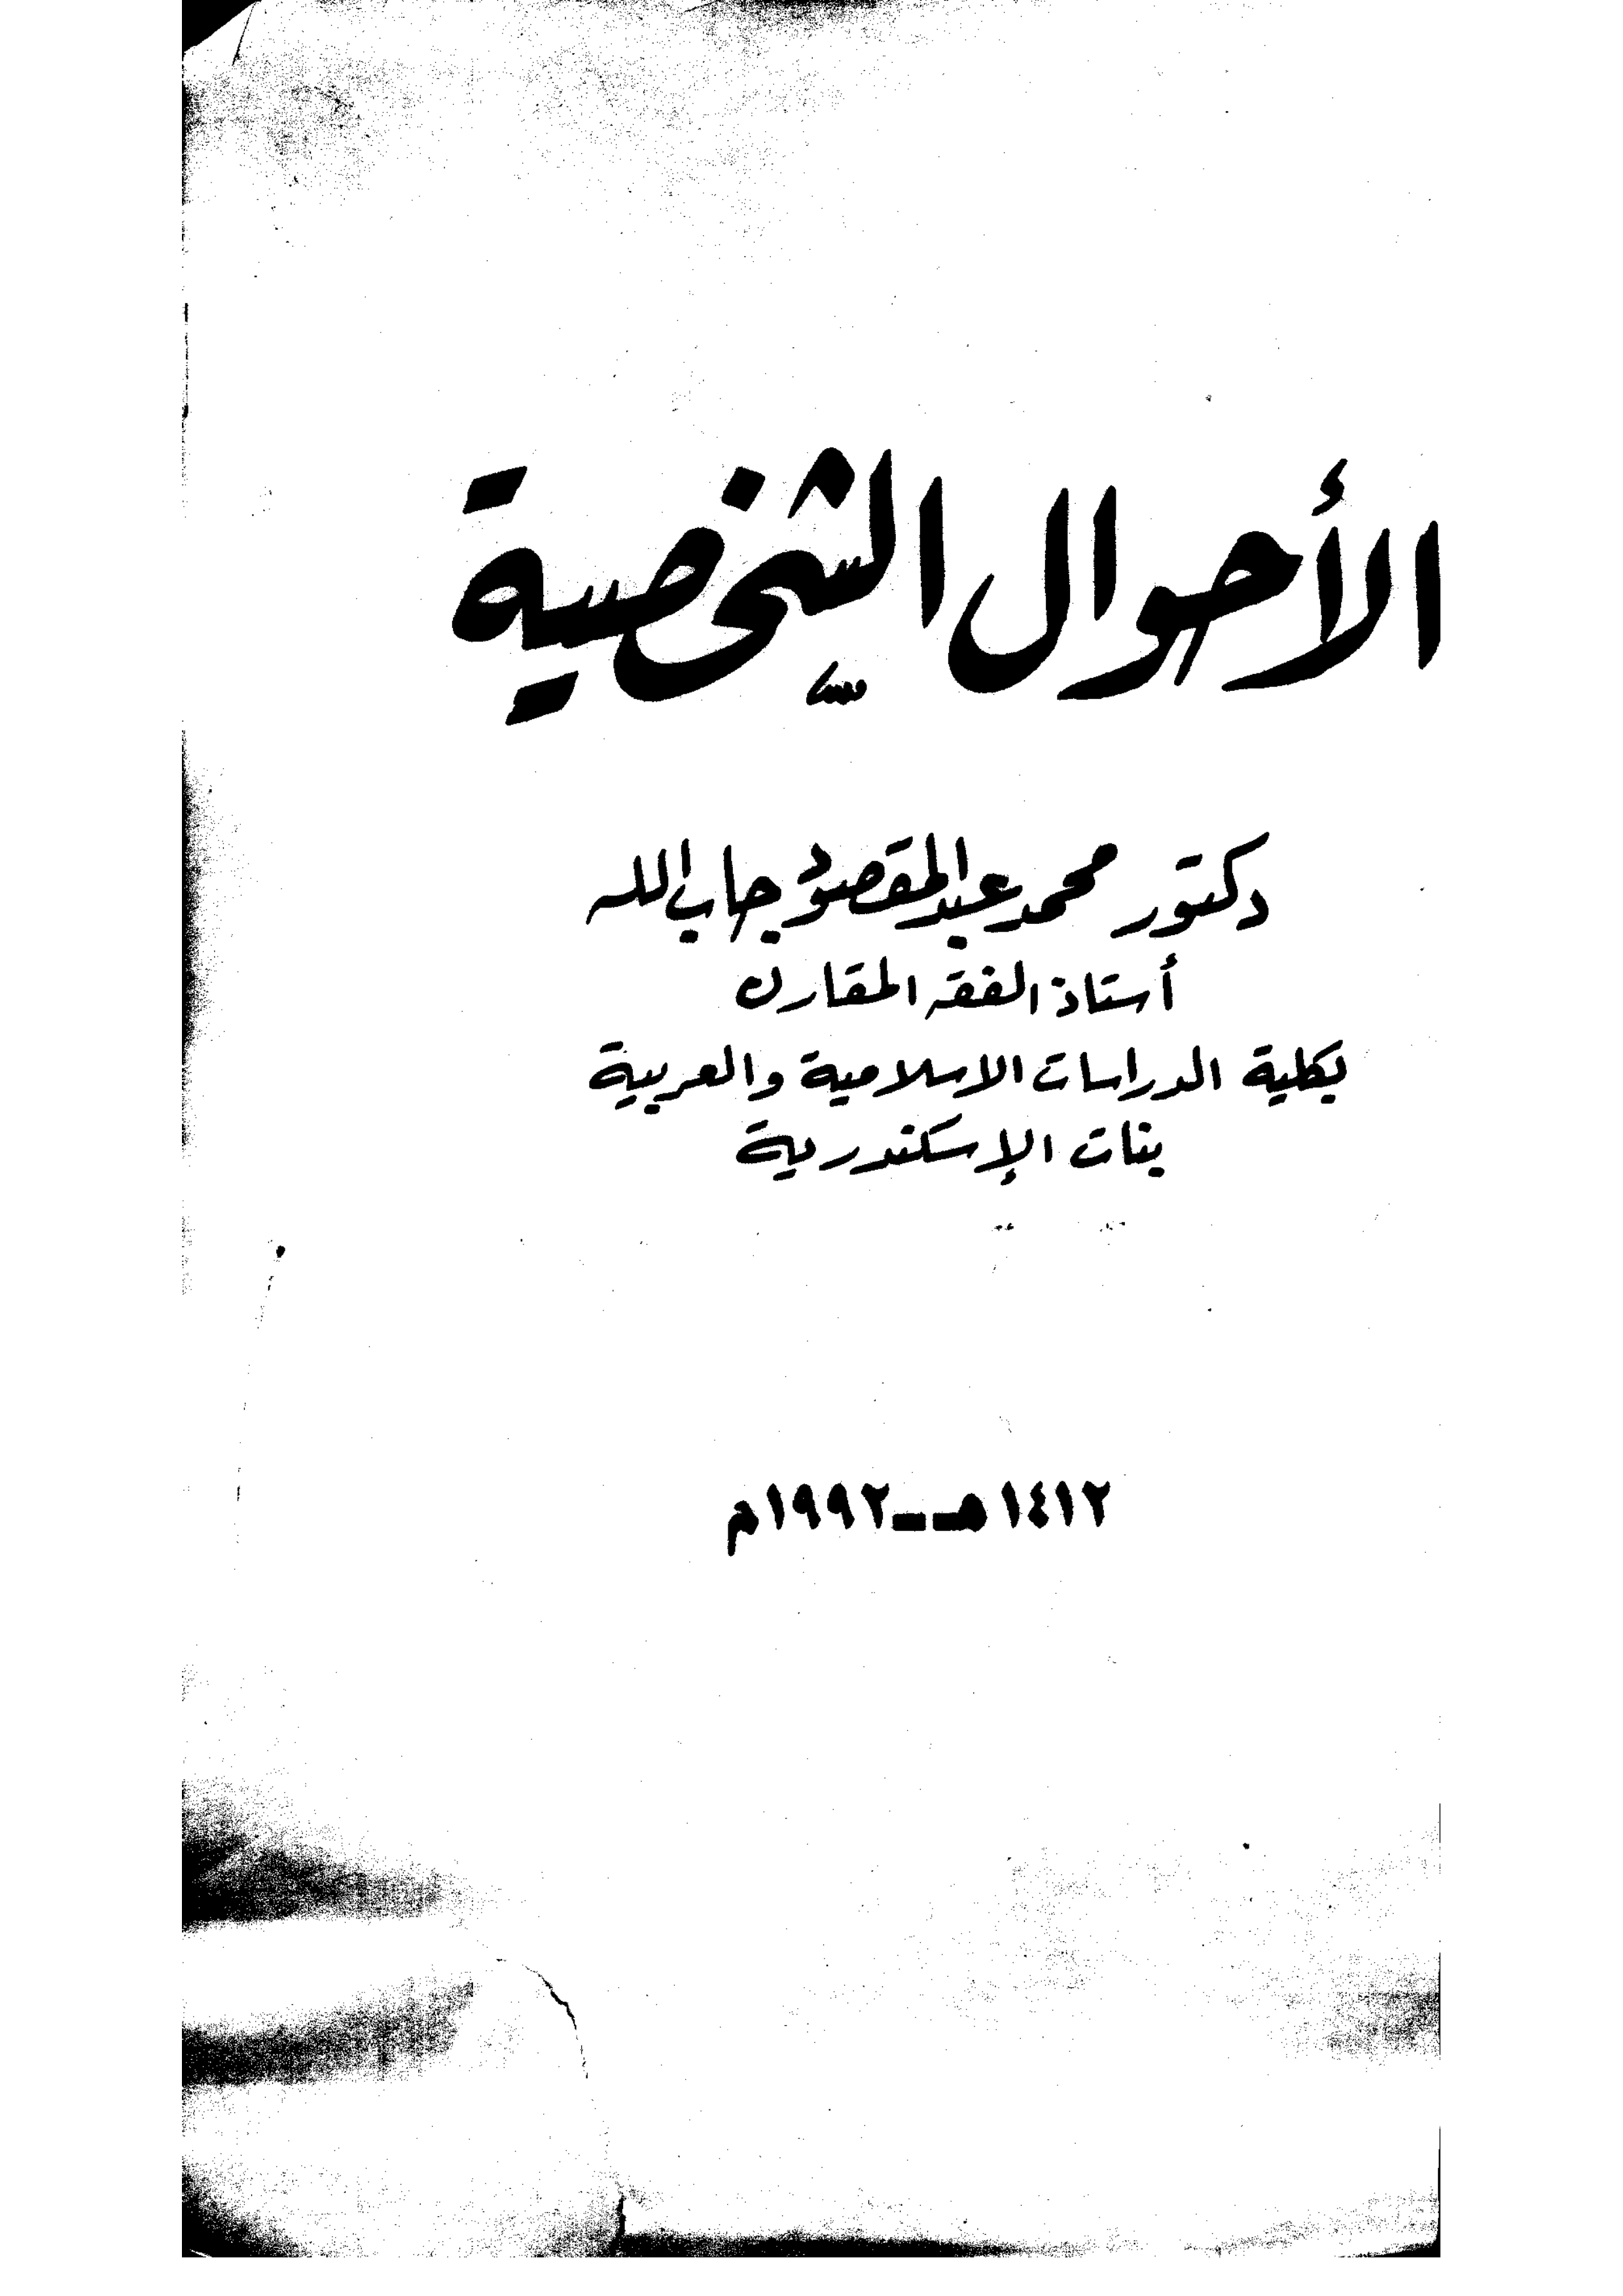 الأحوال الشخصية
دكتور محمد عبد المقصود جاب الله
أستاذ الفقه المقارن
بكلية الدراسات الاسلامية والعربية
بنات الإسكندرية
١٤١٢هـ ــ ١٩٩٢م